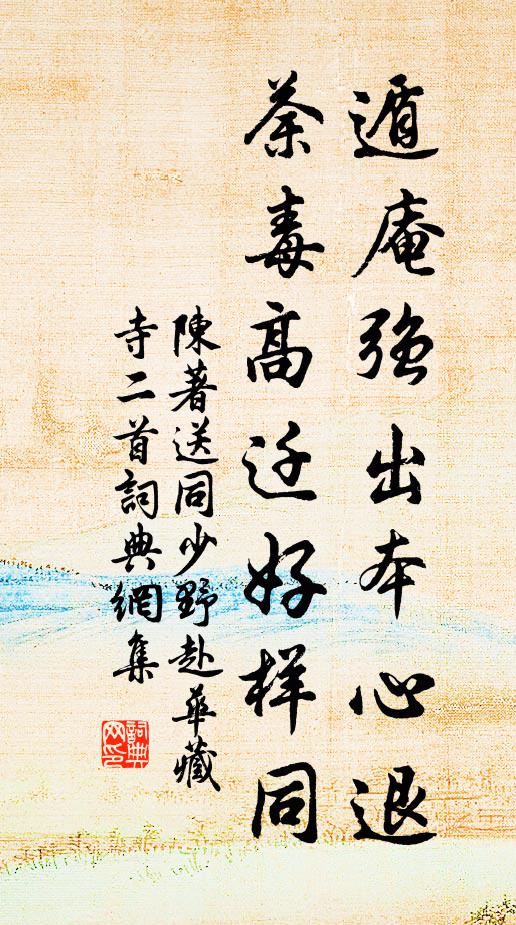 遁庵強出本心退
荼毒高迁好样同
陳著送同少野赴華藏
寺二首詞典網集
詞典網印